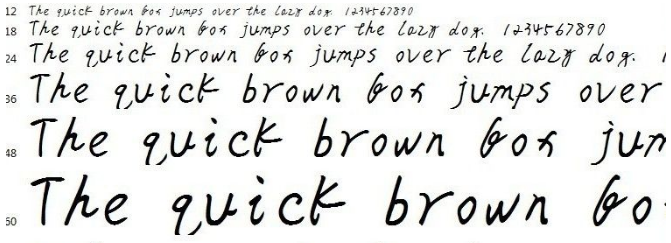 12 The quick brown fox jumps over the lazy dog. 1234567890
18 The quick brown fox jumps over the lazy dog. 1234567890
24 The quick brown fox jumps over the lazy dog. 1
36 The quick brown fox jumps over
48 The quick brown fox jum
60 The quick brown fo